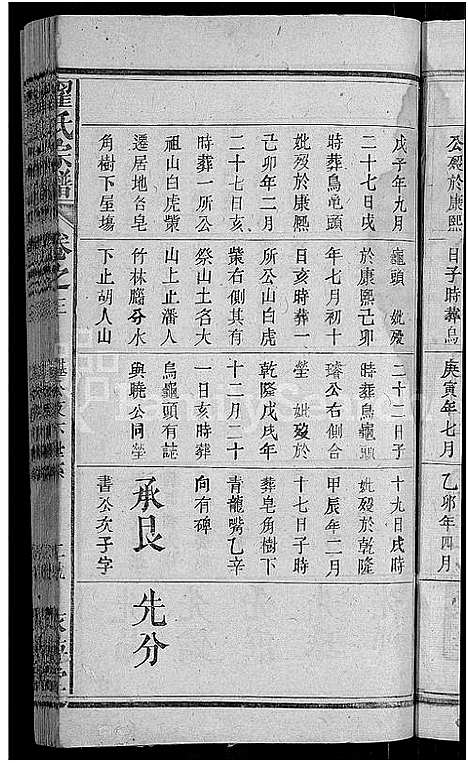 公歿於康熙
日子時葬烏
庚寅年七月
乙卯年四月
戊子年九月
二十七日戌
時葬烏龟頭
妣歿於康熙
己卯年二月
二十七日亥
時葬一所公
祖山白虎棠
遷居地台皂
角樹下屋塲
龜頭 妣歿
於康熙己卯
年七月初十
日亥時葬一
所公山白虎
棠右側其有
祭山土名大
山上止潘人
竹林分水
下止胡人山
二十二日子
時葬烏龜頭
公右側合
塋 妣歿於
乾隆戊戌年
十二月二十
一日亥時葬
烏龜頭有誌
與曉公同塋
十九日戌時
妣歿於乾隆
甲辰年二月
十七日子時
葬皂角樹下
青龍嘴乙辛
向有碑
承艮
書公次子字
先分
翟氏宗譜
卷之三